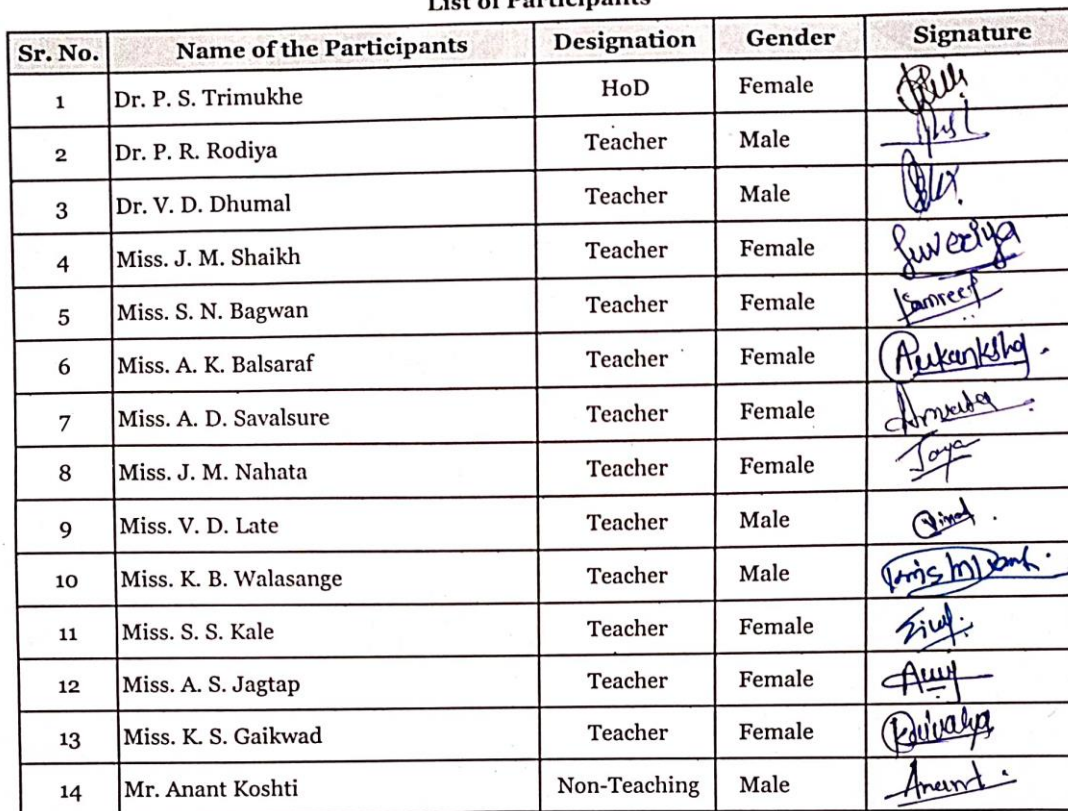 List of Participants
Sr. No. Name of the Participants Designation Gender Signature
1 Dr. P. S. Trimukhe HoD Female
2 Dr. P. R. Rodiya Teacher Male
3 Dr. V. D. Dhumal Teacher Male
4 Miss. J. M. Shaikh Teacher Female Juveriya
5 Miss. S. N. Bagwan Teacher Female
6 Miss. A. K. Balsaraf Teacher Female
7 Miss. A. D. Savalsure Teacher Female
8 Miss. J. M. Nahata Teacher Female Jaya
9 Miss. V. D. Late Teacher Male
10 Miss. K. B. Walasange Teacher Male
11 Miss. S. S. Kale Teacher Female
12 Miss. A. S. Jagtap Teacher Female
13 Miss. K. S. Gaikwad Teacher Female
14 Mr. Anant Koshti Non-Teaching Male Anant